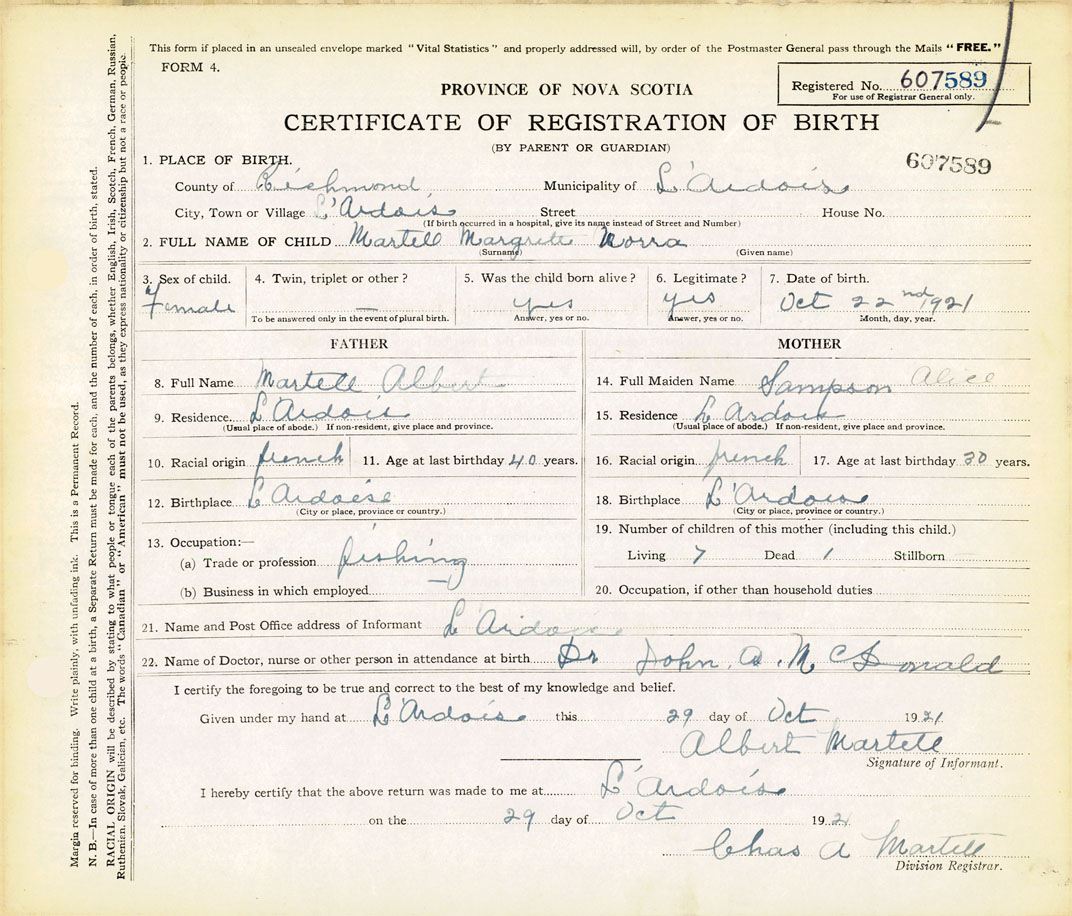 This form if placed in an unsealed envelope marked "Vital Statistics" and properly addressed will, by order of the Postmaster General pass through the Mails "FREE."
FORM 4.
Registered No. 607589
For use of Registrar General only.
PROVINCE OF NOVA SCOTIA
CERTIFICATE OF REGISTRATION OF BIRTH
(BY PARENT OR GUARDIAN)
607589
1. PLACE OF BIRTH.
County of Richmond, Municipality of L'Ardois
City, Town or Village L'Ardois Street House No.
(If birth occurred in a hospital, give its name instead of Street and Number)
2. FULL NAME OF CHILD Martell Margrete Norra
(Surname) (Given name)
3. Sex of child. 4. Twin, triplet or other? 5. Was the child born alive? 6. Legitimate? 7. Date of birth.
Female — yes yes Oct 22nd 1921
To be answered only in the event of plural birth. Answer, yes or no. Answer, yes or no. Month, day, year.
FATHER MOTHER
8. Full Name Martell Albert
14. Full Maiden Name Sampson Alice
9. Residence L'Ardois
15. Residence L Ardois
(Usual place of abode.) If non-resident, give place and province.
(Usual place of abode.) If non-resident, give place and province.
10. Racial origin french 11. Age at last birthday 40 years.
16. Racial origin french 17. Age at last birthday 30 years.
12. Birthplace L Ardoise
18. Birthplace L'Ardoise
(City or place, province or country.)
(City or place, province or country.)
13. Occupation:—
19. Number of children of this mother (including this child.)
(a) Trade or profession fishing
Living 7 Dead 1 Stillborn
(b) Business in which employed
20. Occupation, if other than household duties
21. Name and Post Office address of Informant L'Ardoise
22. Name of Doctor, nurse or other person in attendance at birth Dr John A. McDonald
I certify the foregoing to be true and correct to the best of my knowledge and belief.
Given under my hand at L'Ardois this 29 day of Oct 1921
Albert Martell
Signature of Informant.
I hereby certify that the above return was made to me at L'Ardois
on the 29 day of Oct 1921
Chas A Martell
Division Registrar.
Margin reserved for binding. Write plainly, with unfading ink. This is a Permanent Record.
N. B.—In case of more than one child at a birth, a Separate Return must be made for each, and the number of each, in order of birth, stated.
RACIAL ORIGIN will be described by stating to what people or tongue each of the parents belongs, whether English, Irish, Scotch, French, German, Russian,
Ruthenian, Slovak, Galician, etc. The words "Canadian" or "American" must not be used, as they express nationality or citizenship but not a race or people